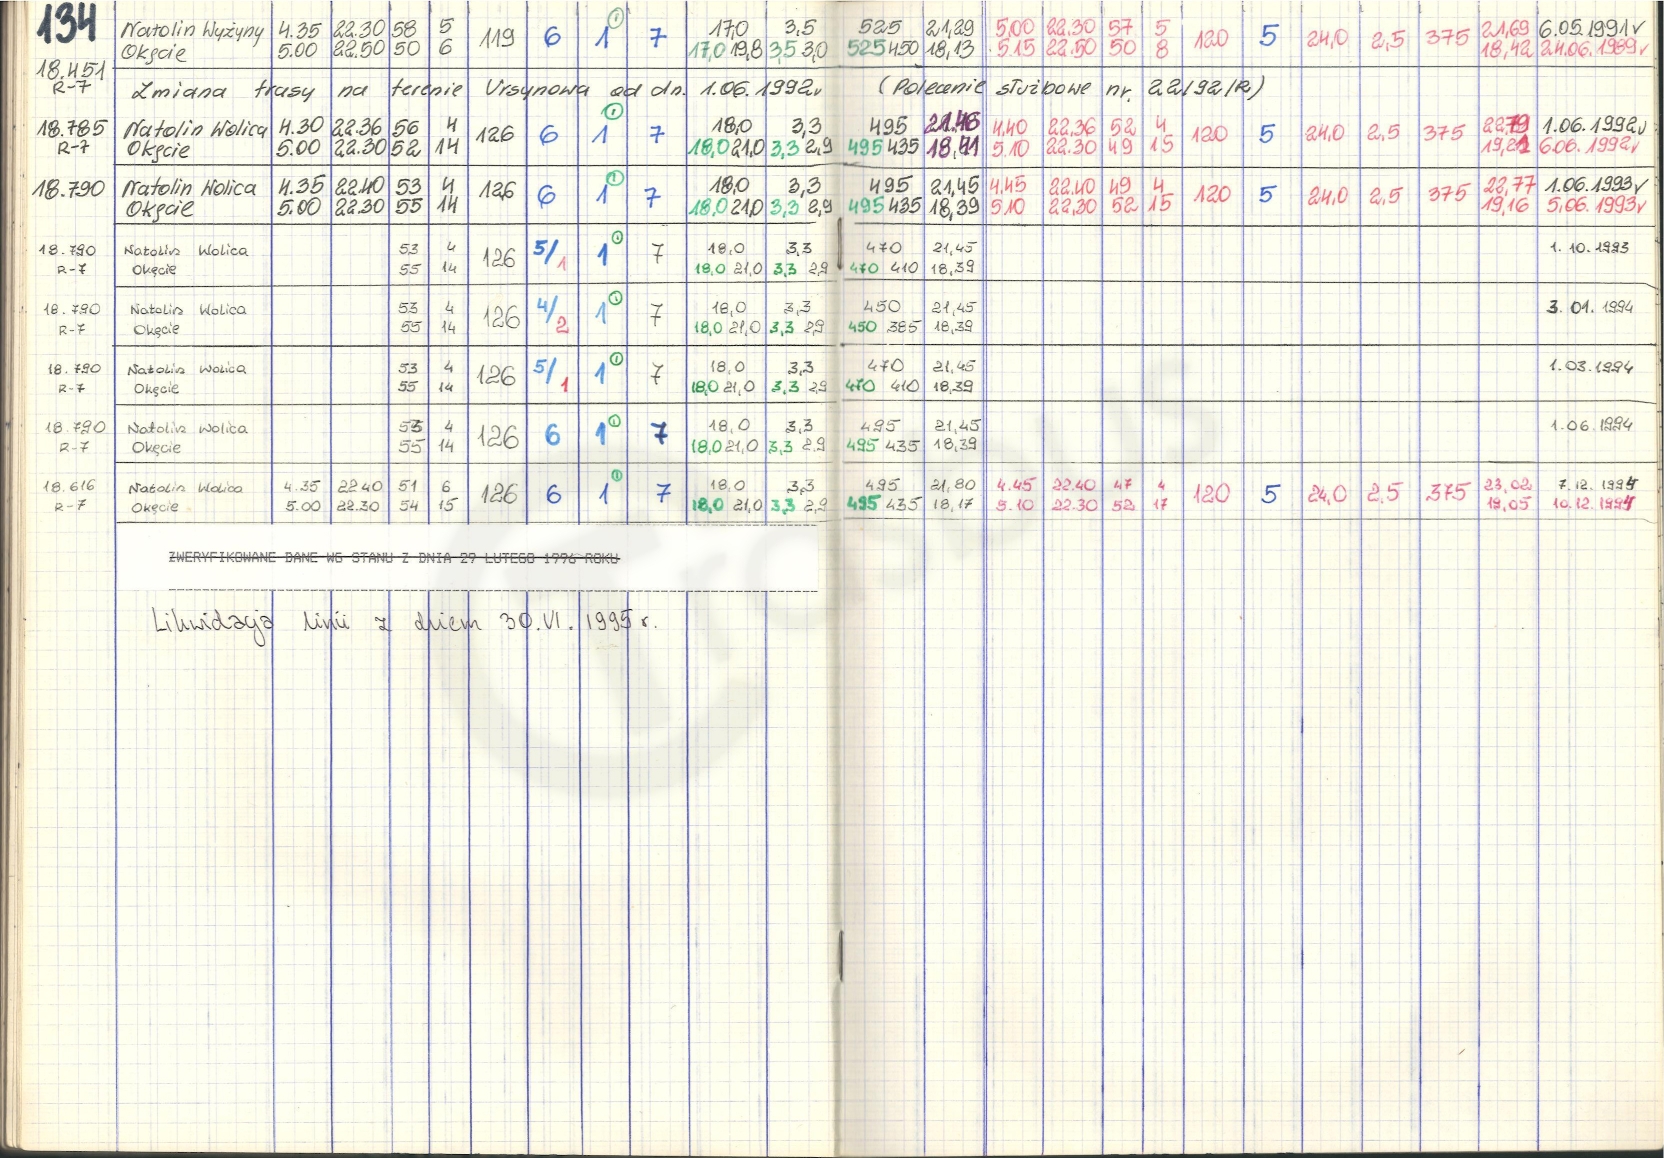 134 Natolin Wyżyny 4.35 22.30 58 5 119 6 1 ① 7 17,0 3,5 525 21,29 5.00 22.30 57 5 120 5 24,0 2,5 375 21,69 6.05.1991 v
Okęcie 5.00 22.50 50 6 17,0 19,8 3,5 3,0 525 450 18,13 5.15 22.50 50 8 18,42 24.06.1989 v
18.451
R-7 Zmiana trasy na terenie Ursynowa od dn. 1.06.1992r (Polecenie służbowe nr. 22/92/R)
18.785 Natolin Wolica 4.30 22.36 56 4 126 6 1 ① 7 18,0 3,3 495 21.46 4.40 22.36 52 4 120 5 24,0 2,5 375 22,79 1.06.1992 v
R-7 Okęcie 5.00 22.30 52 14 18,0 21,0 3,3 2,9 495 435 18,41 5.10 22.30 49 15 19,21 6.06.1992 v
18.790 Natolin Wolica 4.35 22.40 53 4 126 6 1 ① 7 18,0 3,3 495 21,45 4.45 22.40 49 4 120 5 24,0 2,5 375 22,77 1.06.1993 v
Okęcie 5.00 22.30 55 14 18,0 21,0 3,3 2,9 495 435 18,39 5.10 22.30 52 15 19,16 5.06.1993 v
18.790 Natolin Wolica 53 4 126 5/1 1 ① 7 18,0 3,3 470 21,45 1.10.1993
R-7 Okęcie 55 14 18,0 21,0 3,3 2,9 470 410 18,39
18.790 Natolin Wolica 53 4 126 4/2 1 ① 7 18,0 3,3 450 21,45 3.01.1994
R-7 Okęcie 55 14 18,0 21,0 3,3 2,9 450 385 18,39
18.790 Natolin Wolica 53 4 126 5/1 1 ① 7 18,0 3,3 470 21,45 1.03.1994
R-7 Okęcie 55 14 18,0 21,0 3,3 2,9 470 410 18,39
18.790 Natolin Wolica 53 4 126 6 1 ① 7 18,0 3,3 495 21,45 1.06.1994
R-7 Okęcie 55 14 18,0 21,0 3,3 2,9 495 435 18,39
18.616 Natolin Wolica 4.35 22.40 51 6 126 6 1 ① 7 18,0 3,3 495 21,80 4.45 22.40 47 4 120 5 24,0 2,5 375 23,02 7.12.1994
R-7 Okęcie 5.00 22.30 54 15 18,0 21,0 3,3 2,9 495 435 18,17 5.10 22.30 52 17 19,05 10.12.1994
ZWERYFIKOWANE DANE WG STANU Z DNIA 29 LUTEGO 1996 ROKU
Likwidacja linii z dniem 30.VI.1995 r.
Trasbus